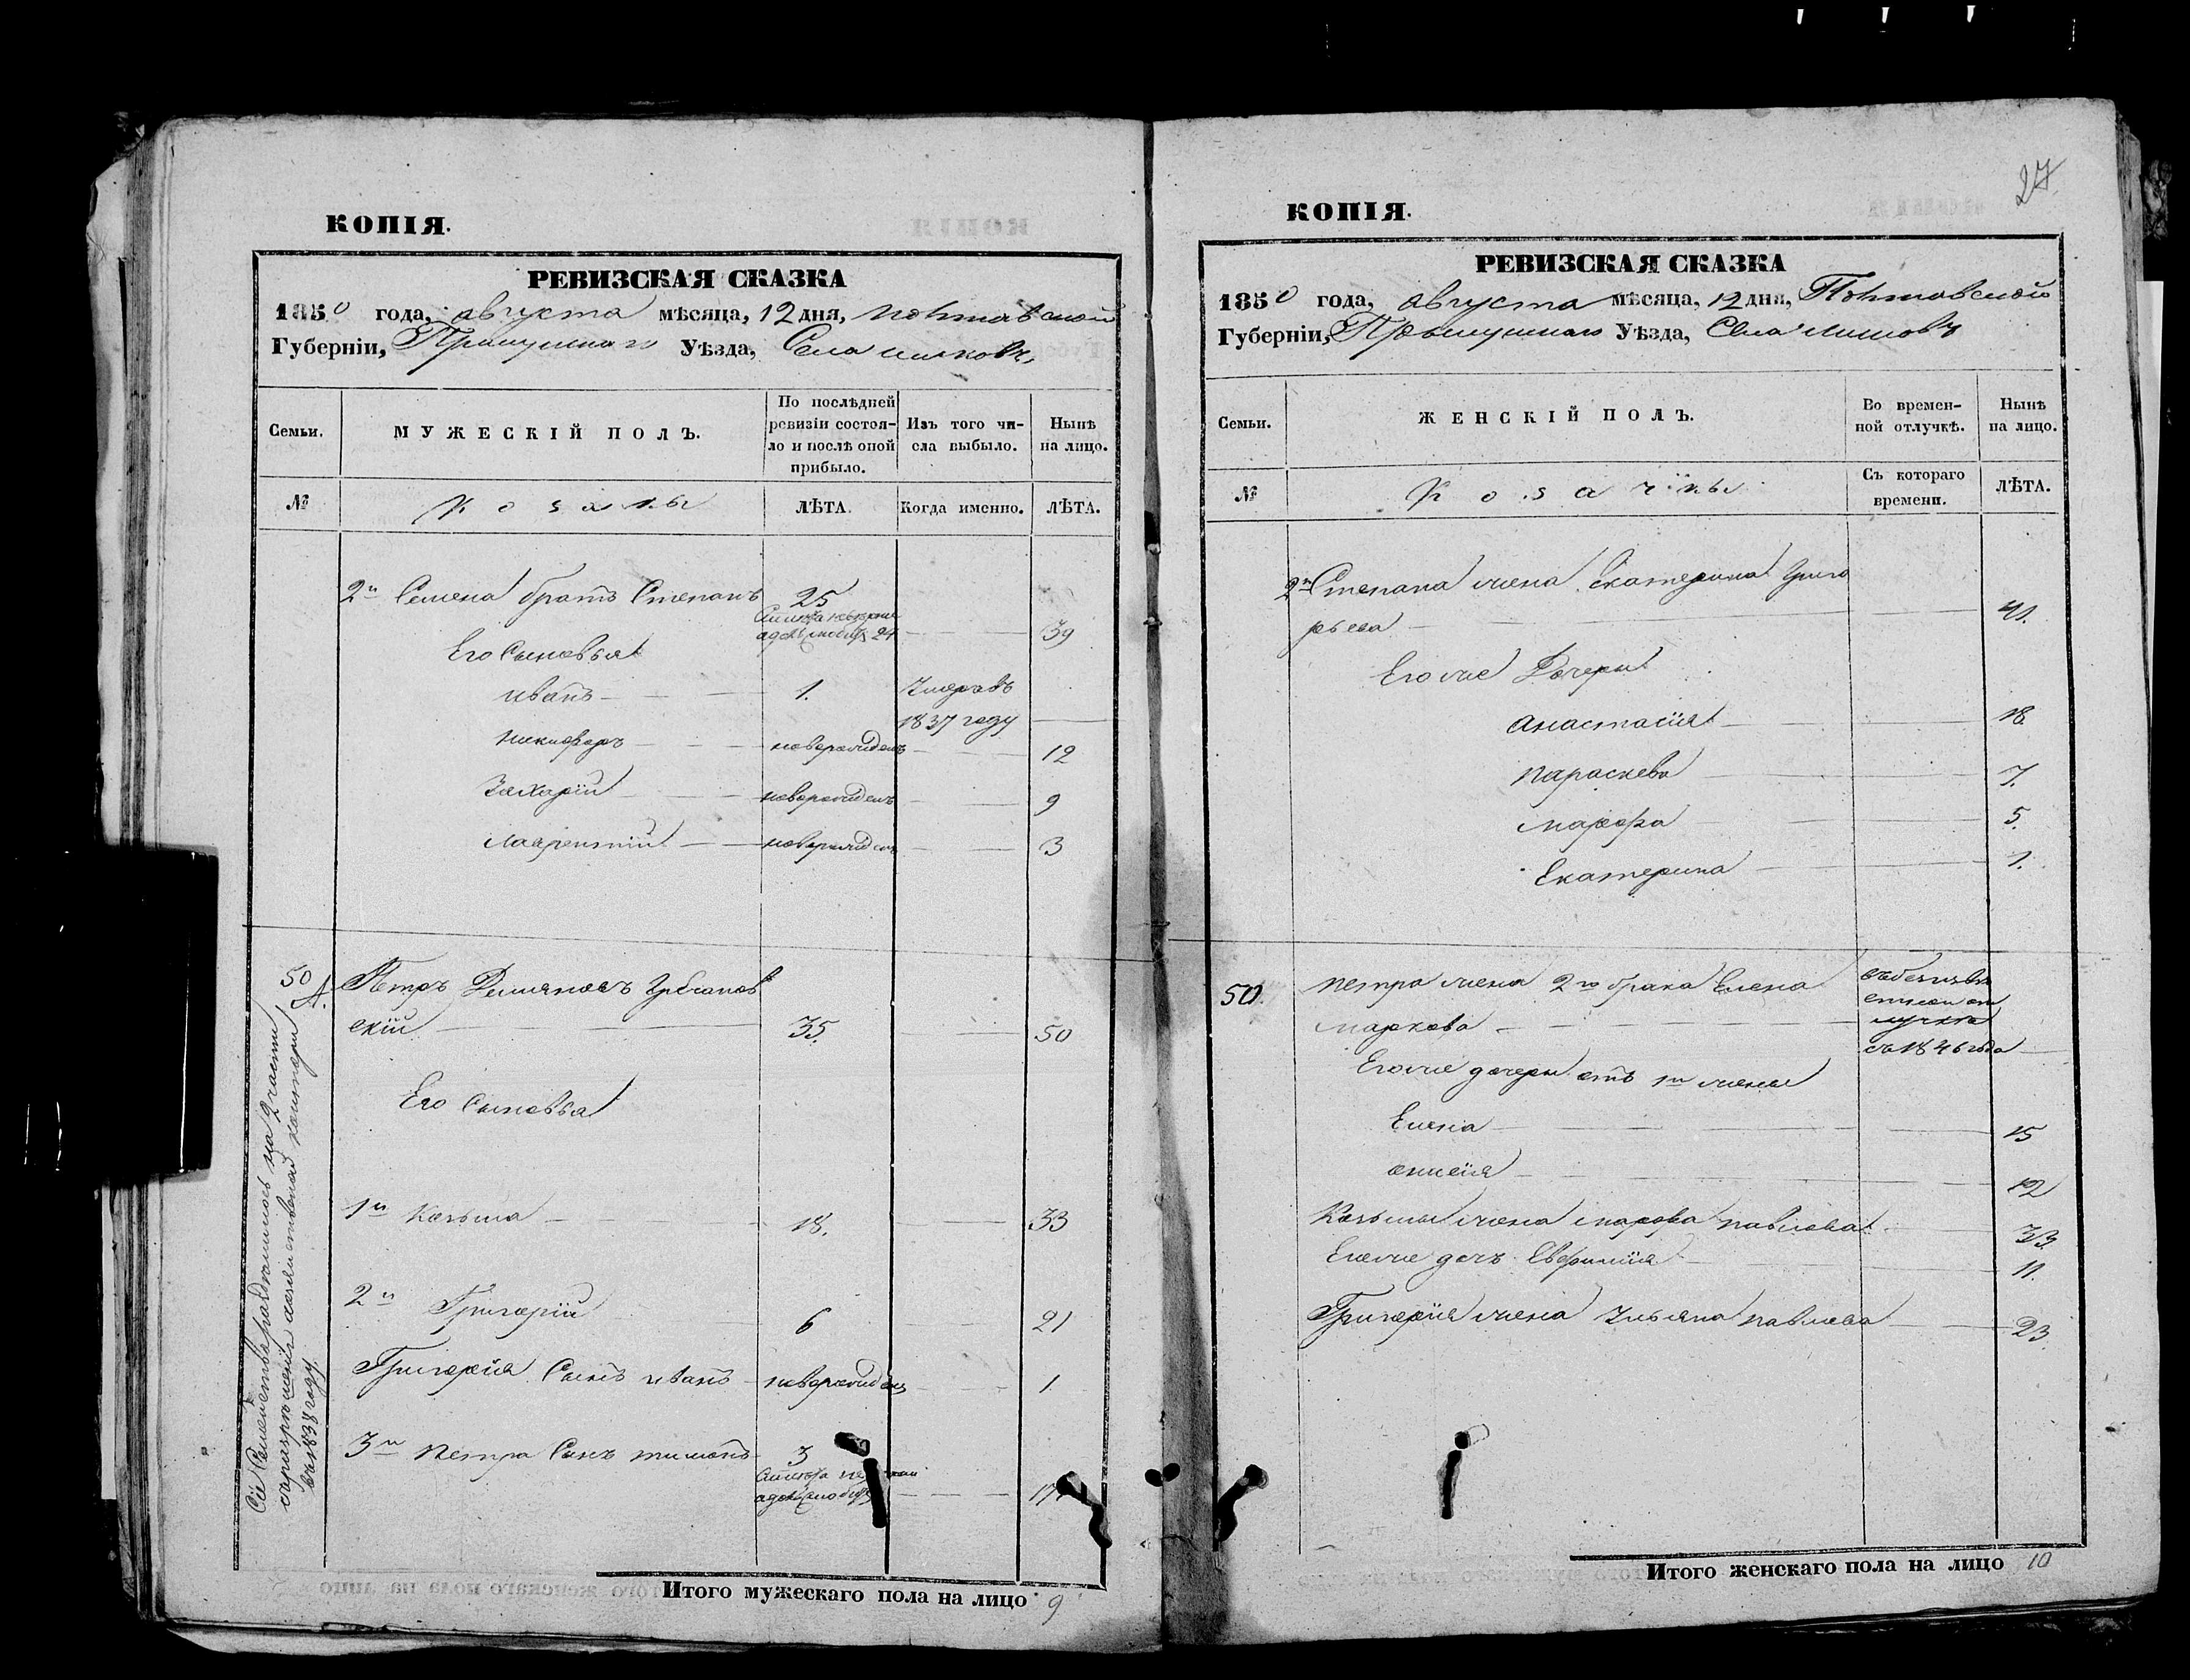 КОПІЯ.
РЕВИЗСКАЯ СКАЗКА
1850 года, августа мѣсяца, 12 дня, Полтавской
Губерніи, Уѣзда, Села
Семьи.
МУЖЕСКІЙ ПОЛЪ.
По послѣдней ревизіи состояло и послѣ оной прибыло.
Изъ того числа выбыло.
Нынѣ на лицо.
№
Козаки
ЛѢТА.
Когда именно.
ЛѢТА.
2й Семена братъ Степанъ 25
39
Его Сыновья
иванъ 1. Умеръ въ
1837 году
никифоръ новорожденъ 12
Захарій новорожденъ 9
лаврентій новорожденъ 3
50
Петръ Демяновъ
скій 35. 50
Его Сыновья
1й Козьма 18. 33
2й Григорій 6 21
Григорія Сынъ иванъ новорожденъ 1
3й петра Сынъ тимофъ 3
17
Сіе Семейство на 2 части
въ 1838 году
Итого мужескаго пола на лицо 9
27
КОПІЯ.
РЕВИЗСКАЯ СКАЗКА
1850 года, августа мѣсяца, 12 дня, Полтавской
Губерніи, Уѣзда, Села
Семьи.
ЖЕНСКІЙ ПОЛЪ.
Во временной отлучкѣ.
Нынѣ на лицо.
№
Козачки
Съ котораго времени.
ЛѢТА.
2й Степана жена Екатерина Григо
рьева 41.
Его же Дочери
анастасія 18
параскева 7.
марфа 5.
Екатерина 1.
50. петра жена 2го брака Елена
маркова
съ 1846 года
Его же дочери отъ 1й жены
Елена 15
12
Козьмы жена марфа павлова 33
Его же дочь Евфимія 11.
Григорія жена Ульяна павлова 23
Итого женскаго пола на лицо 10